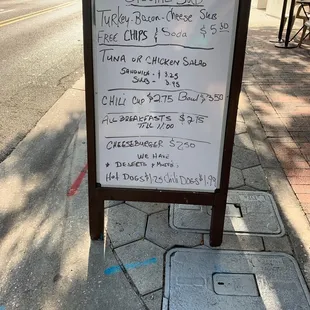 Turkey-Bacon-Cheese Subs
Free Chips & Soda $5.50
Tuna or Chicken Salad
Sandwich - $3.25
Subs - 3.95
Chili Cup $2.75 Bowl $3.50
All Breakfasts $2.75
Till 11:00
Cheeseburger $2.50
We Have
Hot Dogs $1.25 Chili Dogs $1.99